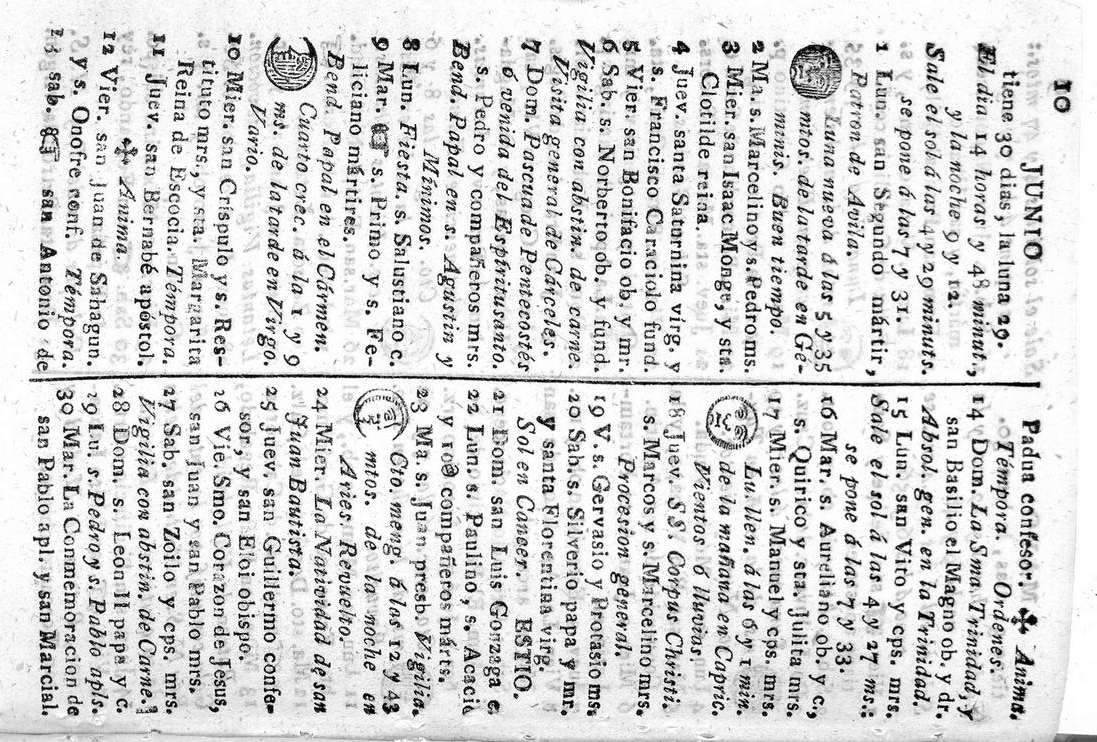 10
JUNIO
tiene 30 dias, la luna 29.
El dia 14 horas y 48 minut.,
y la noche 9 y 12.
Sale el sol á las 4 y 29 minuts.
se pone á las 7 y 31.
1 Lun. san Segundo mártir,
Patron de Avila.
Luna nueva á las 5 y 35
mtos. de la tarde en Gé-
minis. Buen tiempo.
2 Ma. s. Marcelino y s. Pedro ms.
3 Mier. san Isaac Monge, y sta.
Clotilde reina.
4 Juev. santa Saturnina virg. y
s. Francisco Caraciolo fund.
5 Vier. san Bonifacio ob. y mr.
6 Sab. s. Norberto ob. y fund.
Vigilia con abstin. de carne.
Visita general de Cárceles.
7 Dom. Pascua de Pentecostés
ó venida del Espíritusanto.
s. Pedro y compañeros mrs.
Bend. Papal en s. Agustin y
Mínimos.
8 Lun. Fiesta. s. Salustiano c.
9 Mar. ☞ s. Primo y s. Fe-
liciano mártires.
Bend. Papal en el Cármen.
Cuarto crec. á la 1 y 9
ms. de la tarde en Virgo.
Vario.
10 Mier. san Crispulo y s. Res-
tituto mrs., y sta. Margarita
Reina de Escocia. Témpora.
11 Juev. san Bernabé apóstol.
✠ Anima.
12 Vier. san Juan de Sahagun.
y s. Onofre conf. Témpora.
13 sab. ☞ san Antonio de
Padua confesor. ✠ Anima.
Témpora. Ordenes.
14 Dom. La Sma. Trinidad, y
san Basilio el Magno ob. y dr.
Absol. gen. en la Trinidad.
15 Lun. san Vito y cps. mrs.
Sale el sol á las 4 y 27 ms.:
se pone á las 7 y 33.
16 Mar. s. Aureliano ob. y c.,
s. Quirico y sta. Julita mrs.
17 Mier. s. Manuel y cps. mrs.
Lu. llen. á las 6 y 1 min.
de la mañana en Capric.
Vientos ó lluvias.
18 Juev. SS. Corpus Christi.
s. Marcos y s. Marcelino mrs.
Procesion general.
19 V. s. Gervasio y Protasio ms.
20 Sab. s. Silverio papa y mr.
y santa Florentina virg.
Sol en Cancer. ESTIO.
21 Dom. san Luis Gonzaga c.
22 Lun. s. Paulino, s. Acacio
y 10@ compañeros márts.
23 Ma. s. Juan presb. Vigilia.
Cto. meng. á las 12 y 43
mtos. de la noche en
Aries. Revuelto.
24 Mier. La Navidad de san
Juan Bautista.
25 Juev. san Guillermo confe-
sor, y san Eloi obispo.
26 Vie. Smo. Corazon de Jesus,
san Juan y san Pablo mrs.
27 Sab. san Zoilo y cps. mrs.
Vigilia con abstin. de Carne.
28 Dom. s. Leon II papa y c.
29 Lu. s. Pedro y s. Pablo apls.
30 Mar. La Conmemoracion de
san Pablo apl. y san Marcial.